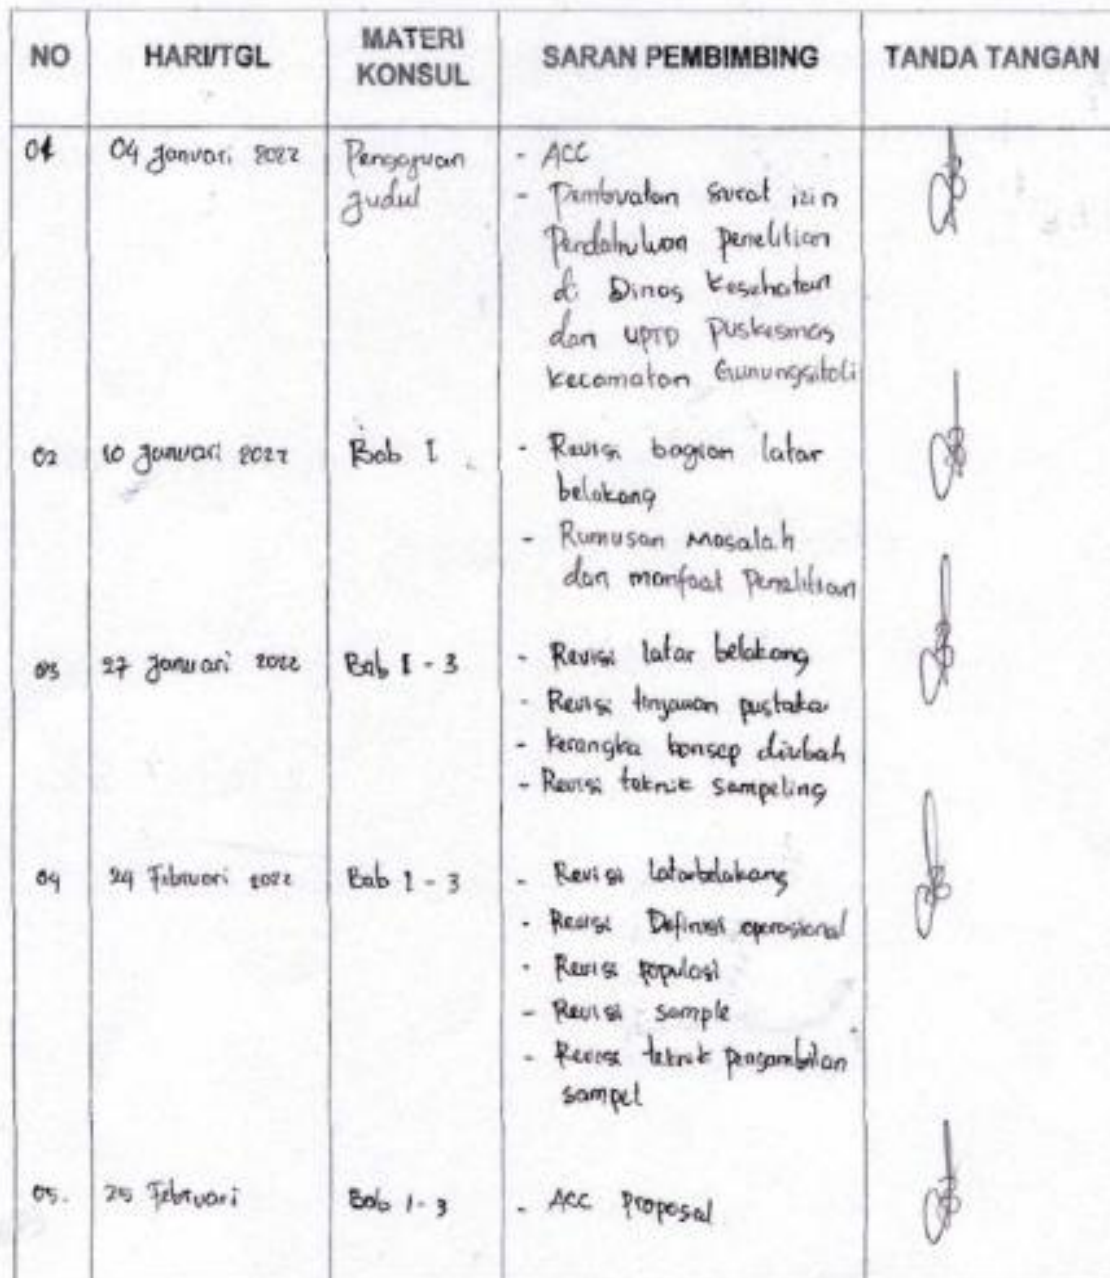 NO HARI/TGL MATERI KONSUL SARAN PEMBIMBING TANDA TANGAN
01 04 Januari 2022 Pengajuan - ACC
Judul - Pembuatan surat izin
Pendahuluan penelitian
di Dinas Kesehatan
dan UPTD Puskesmas
Kecamatan Gunungsitoli
02 10 Januari 2022 Bab I - Revisi bagian latar
belakang
- Rumusan Masalah
dan manfaat Penelitian
03 27 Januari 2022 Bab I - 3 - Revisi latar belakang
- Revisi tinjauan pustaka
- Kerangka konsep diubah
- Revisi teknik sampeling
04 24 Februari 2022 Bab 1 - 3 - Revisi latarbelakang
- Revisi Definisi operasional
- Revisi populasi
- Revisi sample
- Revisi teknik pengambilan
sampel
05. 25 Februari Bab 1 - 3 - ACC Proposal